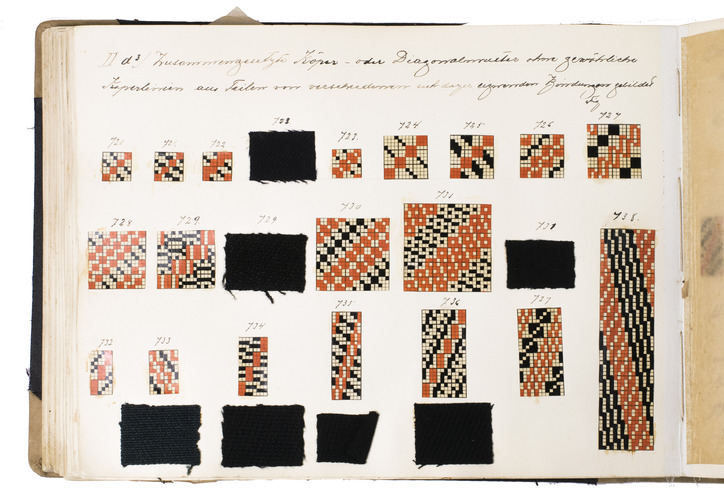 II d³/ Zusammengesetzte Köper- oder Diagonalmuster ohne gewöhnliche
Köperlinien aus Teilen von verschiedenen sich dazu eignenden Bindungen gebildet
720 721 722 722 723 724 725 726 727
728 729 729 730 731 731 738.
732 733 734 735 736 737